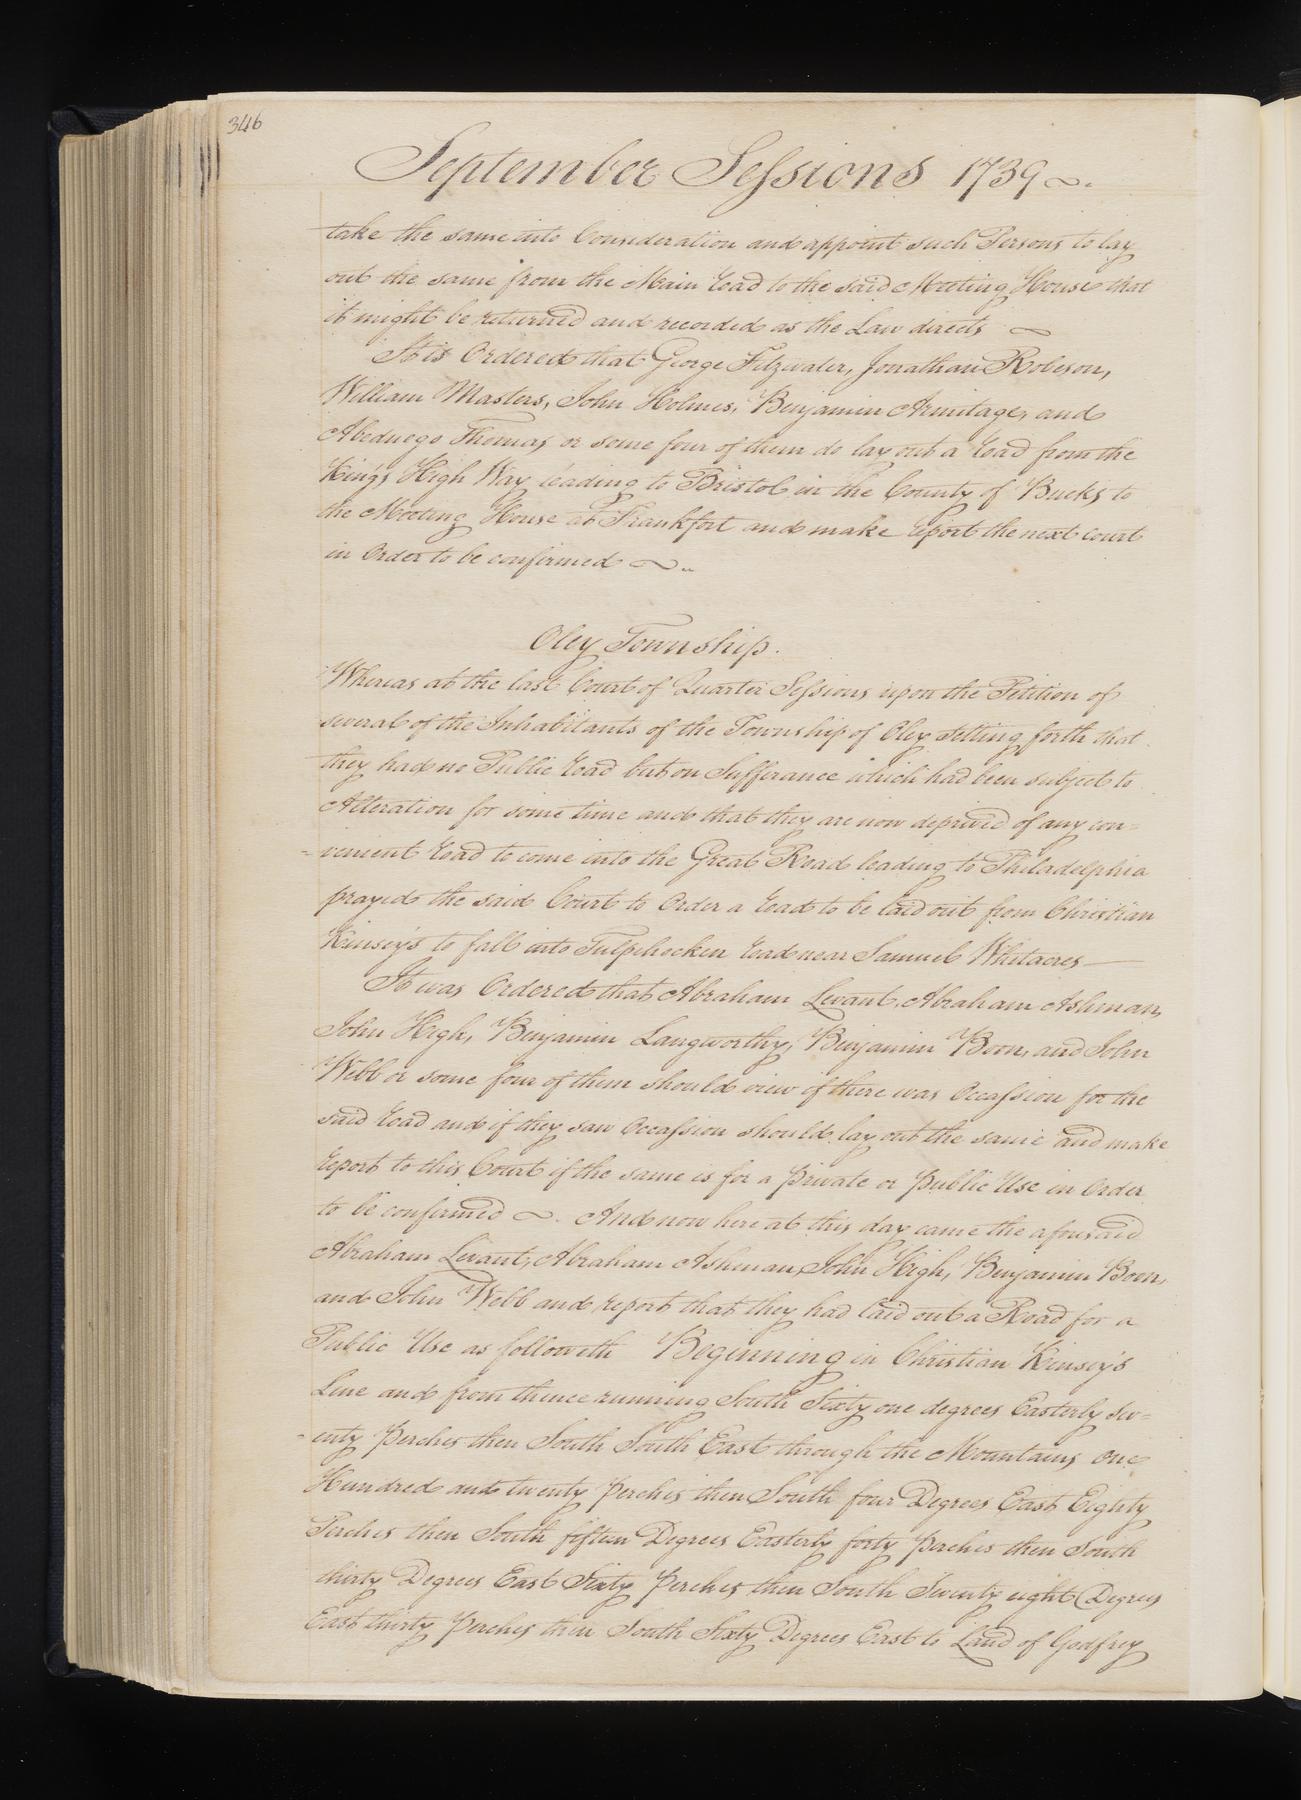 346
September Sessions 1739
take the same into Consideration and appoint such Persons to lay
out the same from the Main Road to the said Meeting House that
it might be returned and recorded as the Law directs
It is Ordered that George Fitzwater, Jonathan Robeson,
William Masters, John Holmes, Benjamin Armitage, and
Abednego Thomas or some four of them do lay out a Road from the
King's High Way leading to Bristol in the County of Bucks to
the Meeting House at Frankfort and make report the next Court
in Order to be confirmed
Oley Township.
Whereas at the last Court of Quarter Sessions upon the Petition of
several of the Inhabitants of the Township of Oley setting forth that
they had no Public Road but on Sufferance which had been subject to
Alteration for some time and that they are now deprived of any con=
=venient Road to come into the Great Road leading to Philadelphia
prayed the said Court to Order a Road to be laid out from Christian
Kinsey's to fall into Tulpehocken Road near Samuel Whitacres
It was Ordered that Abraham Levant, Abraham Ashman,
John High, Benjamin Langworthy, Benjamin Boon, and John
Webb or some four of them should view if there was Occassion for the
said Road and if they saw Occassion should lay out the same and make
report to this Court if the same is for a private or public Use in Order
to be confirmed. And now here at this day came the aforesaid
Abraham Levant, Abraham Ashman, John High, Benjamin Boon,
and John Webb and report that they had laid out a Road for a
Public Use as followeth Beginning in Christian Kinsey's
Line and from thence running South Sixty one degrees Easterly Sev=
=enty perches then South South East through the Mountains One
Hundred and twenty perches then South four Degrees East Eighty
Perches then South fifteen Degrees Easterly forty perches then South
thirty Degrees East Sixty perches then South Seventy eight Degrees
East thirty perches then South Sixty Degrees East to Land of Godfrey